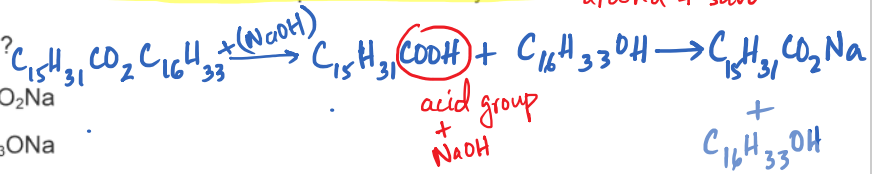 ?
C₁₅H₃₁CO₂C₁₆H₃₃ +(NaOH) → C₁₅H₃₁COOH + C₁₆H₃₃OH → C₁₅H₃₁CO₂Na
O₂Na
acid group
+
+
NaOH
₃ONa
C₁₆H₃₃OH